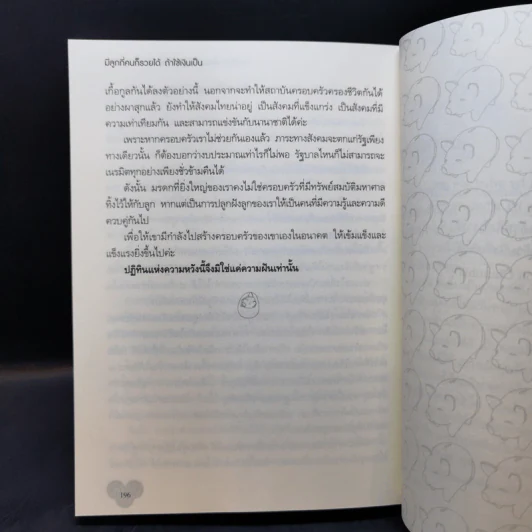 มีลูกกี่คนก็รวยได้ ถ้าใช้เงินเป็น
เกื้อกูลกันได้ลงตัวอย่างนี้ นอกจากจะทำให้สถาบันครอบครัวครองชีวิตกันได้
อย่างผาสุกแล้ว ยังทำให้สังคมไทยน่าอยู่ เป็นสังคมที่แข็งแกร่ง เป็นสังคมที่มี
ความเท่าเทียมกัน และสามารถแข่งขันกับนานาชาติได้ค่ะ
เพราะหากครอบครัวเราไม่ช่วยกันเองแล้ว ภาระทางสังคมจะตกแก่รัฐเพียง
ทางเดียวนั้น ก็ต้องบอกว่างบประมาณเท่าไรก็ไม่พอ รัฐบาลไหนก็ไม่สามารถจะ
เนรมิตทุกอย่างเพียงชั่วข้ามคืนได้
ดังนั้น มรดกที่ยิ่งใหญ่ของเราคงไม่ใช่ครอบครัวที่มีทรัพย์สมบัติมหาศาล
ทิ้งไว้ให้กับลูก หากแต่เป็นการปลูกฝังลูกของเราให้เป็นคนที่มีความรู้และความดี
ควบคู่กันไป
เพื่อให้เขามีกำลังไปสร้างครอบครัวของเขาเองในอนาคต ให้เข้มแข็งและ
แข็งแรงยิ่งขึ้นไปค่ะ
ปฏิทินแห่งความหวังนี้จึงมิใช่แค่ความฝันเท่านั้น
196